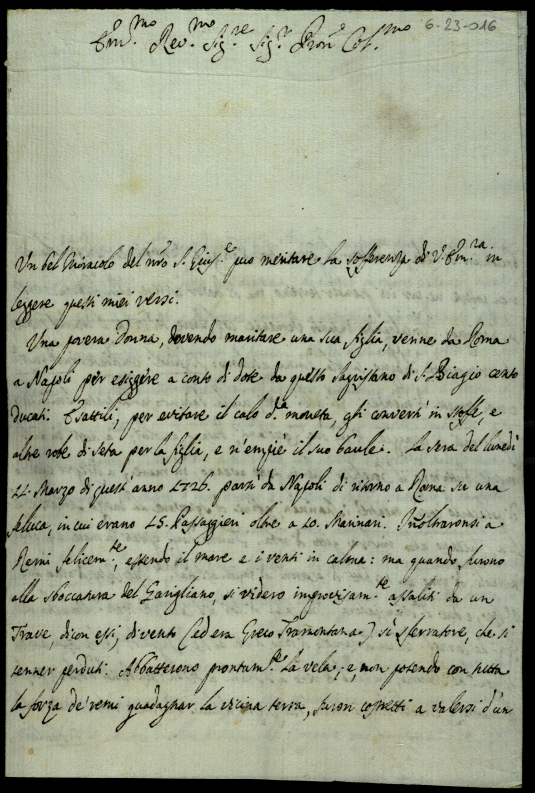 6-23-016
Em.mo Rev.mo Sig.re Sig.r Pron.e Col.mo
Un bel Miracolo del nro S. Gius.e può meritare la sofferenza di V. Em.za in
leggere questi miei versi.
Una povera Donna, dovendo maritare una sua figlia, venne da Roma
a Napoli per esiggere a conto di dote da questo Sagristano di S. Biagio cento
Ducati. Esattili, per evitare il calo d.a moneta, gli convertì in stoffe, e
altre robe di seta per la figlia, e n'empiè il suo baule. La sera del lunedì
11. Marzo di quest'anno 1726. partì da Napoli di ritorno a Roma su una
feluca, in cui erano 15. Passaggieri oltre a 10. Marinari. Inoltraronsi a
Remi felicem.te, essendo il mare e i venti in calma: ma quando furono
alla sboccatura del Garigliano, si videro improvisam.te assaliti da un
Trave, dicon essi, di vento (ed era Greco Tramontana) sì sferratore, che si
tenner perduti. Abbatterono prontam.te la vela; e, non potendo con tutta
la forza de' remi guadagnar la vicina terra, furon costretti a valersi d'un